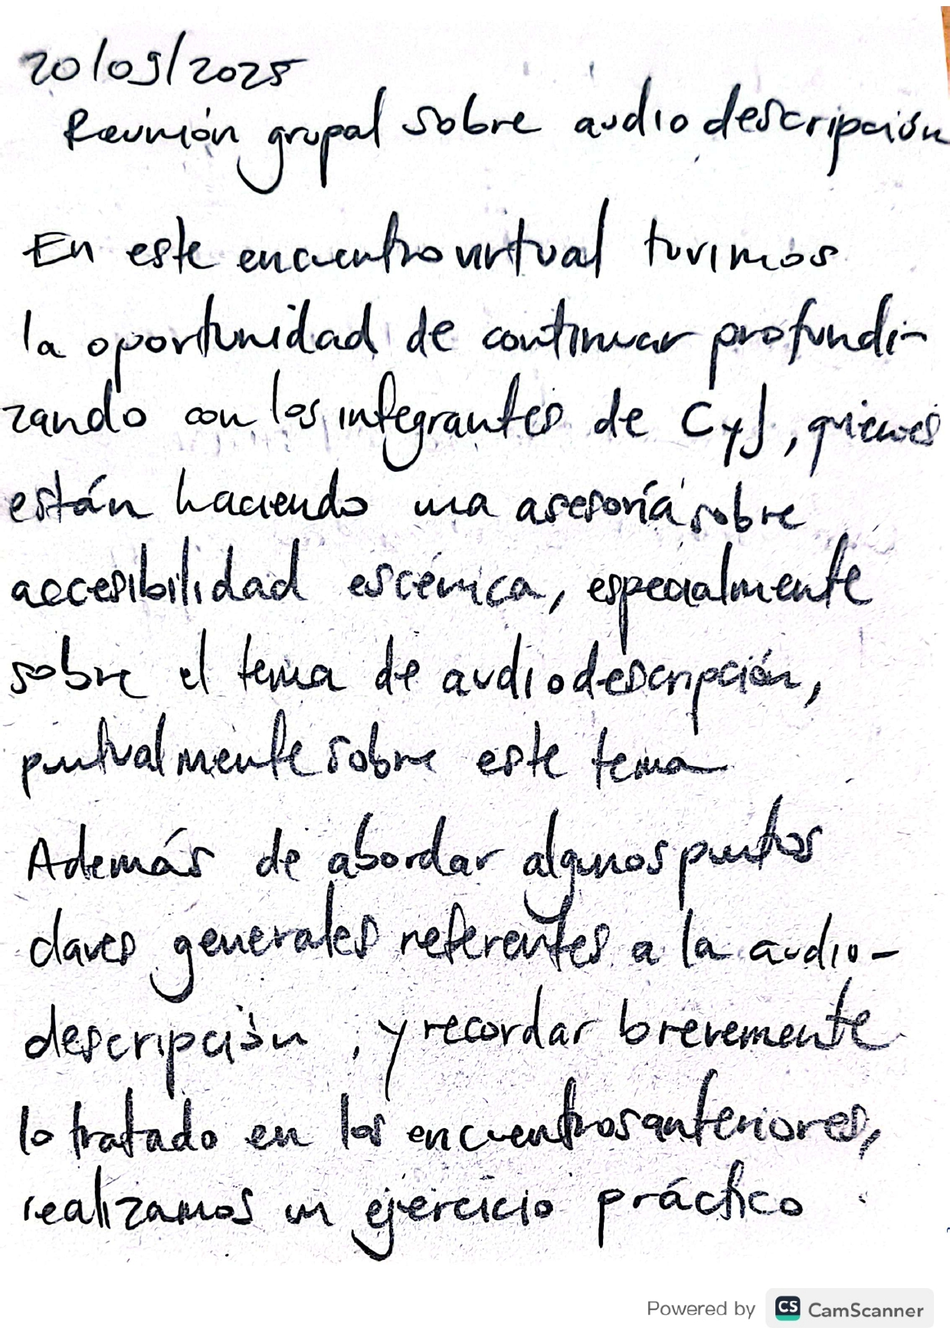 20/09/2025
Reunión grupal sobre audiodescripción
En este encuentro virtual tuvimos
la oportunidad de continuar profundi-
zando con los integrantes de CyJ, quienes
están haciendo una asesoría sobre
accesibilidad escénica, especialmente
sobre el tema de audiodescripción,
puntualmente sobre este tema
Además de abordar algunos puntos
claves generales referentes a la audio-
descripción, y recordar brevemente
lo tratado en los encuentros anteriores,
realizamos un ejercicio práctico.
Powered by CS CamScanner